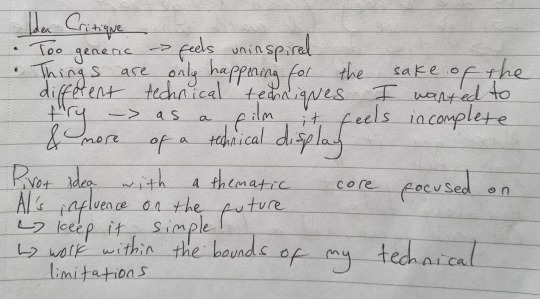 Idea Critique
• Too generic -> feels uninspired
• Things are only happning for the sake of the
different technical techniques I wanted to
try -> as a film it feels incomplete
& more of a technical display
Pivot idea with a thematic core focused on
AI's influence on the future
↳ keep it simple
↳ work within the bounds of my technical
limitations